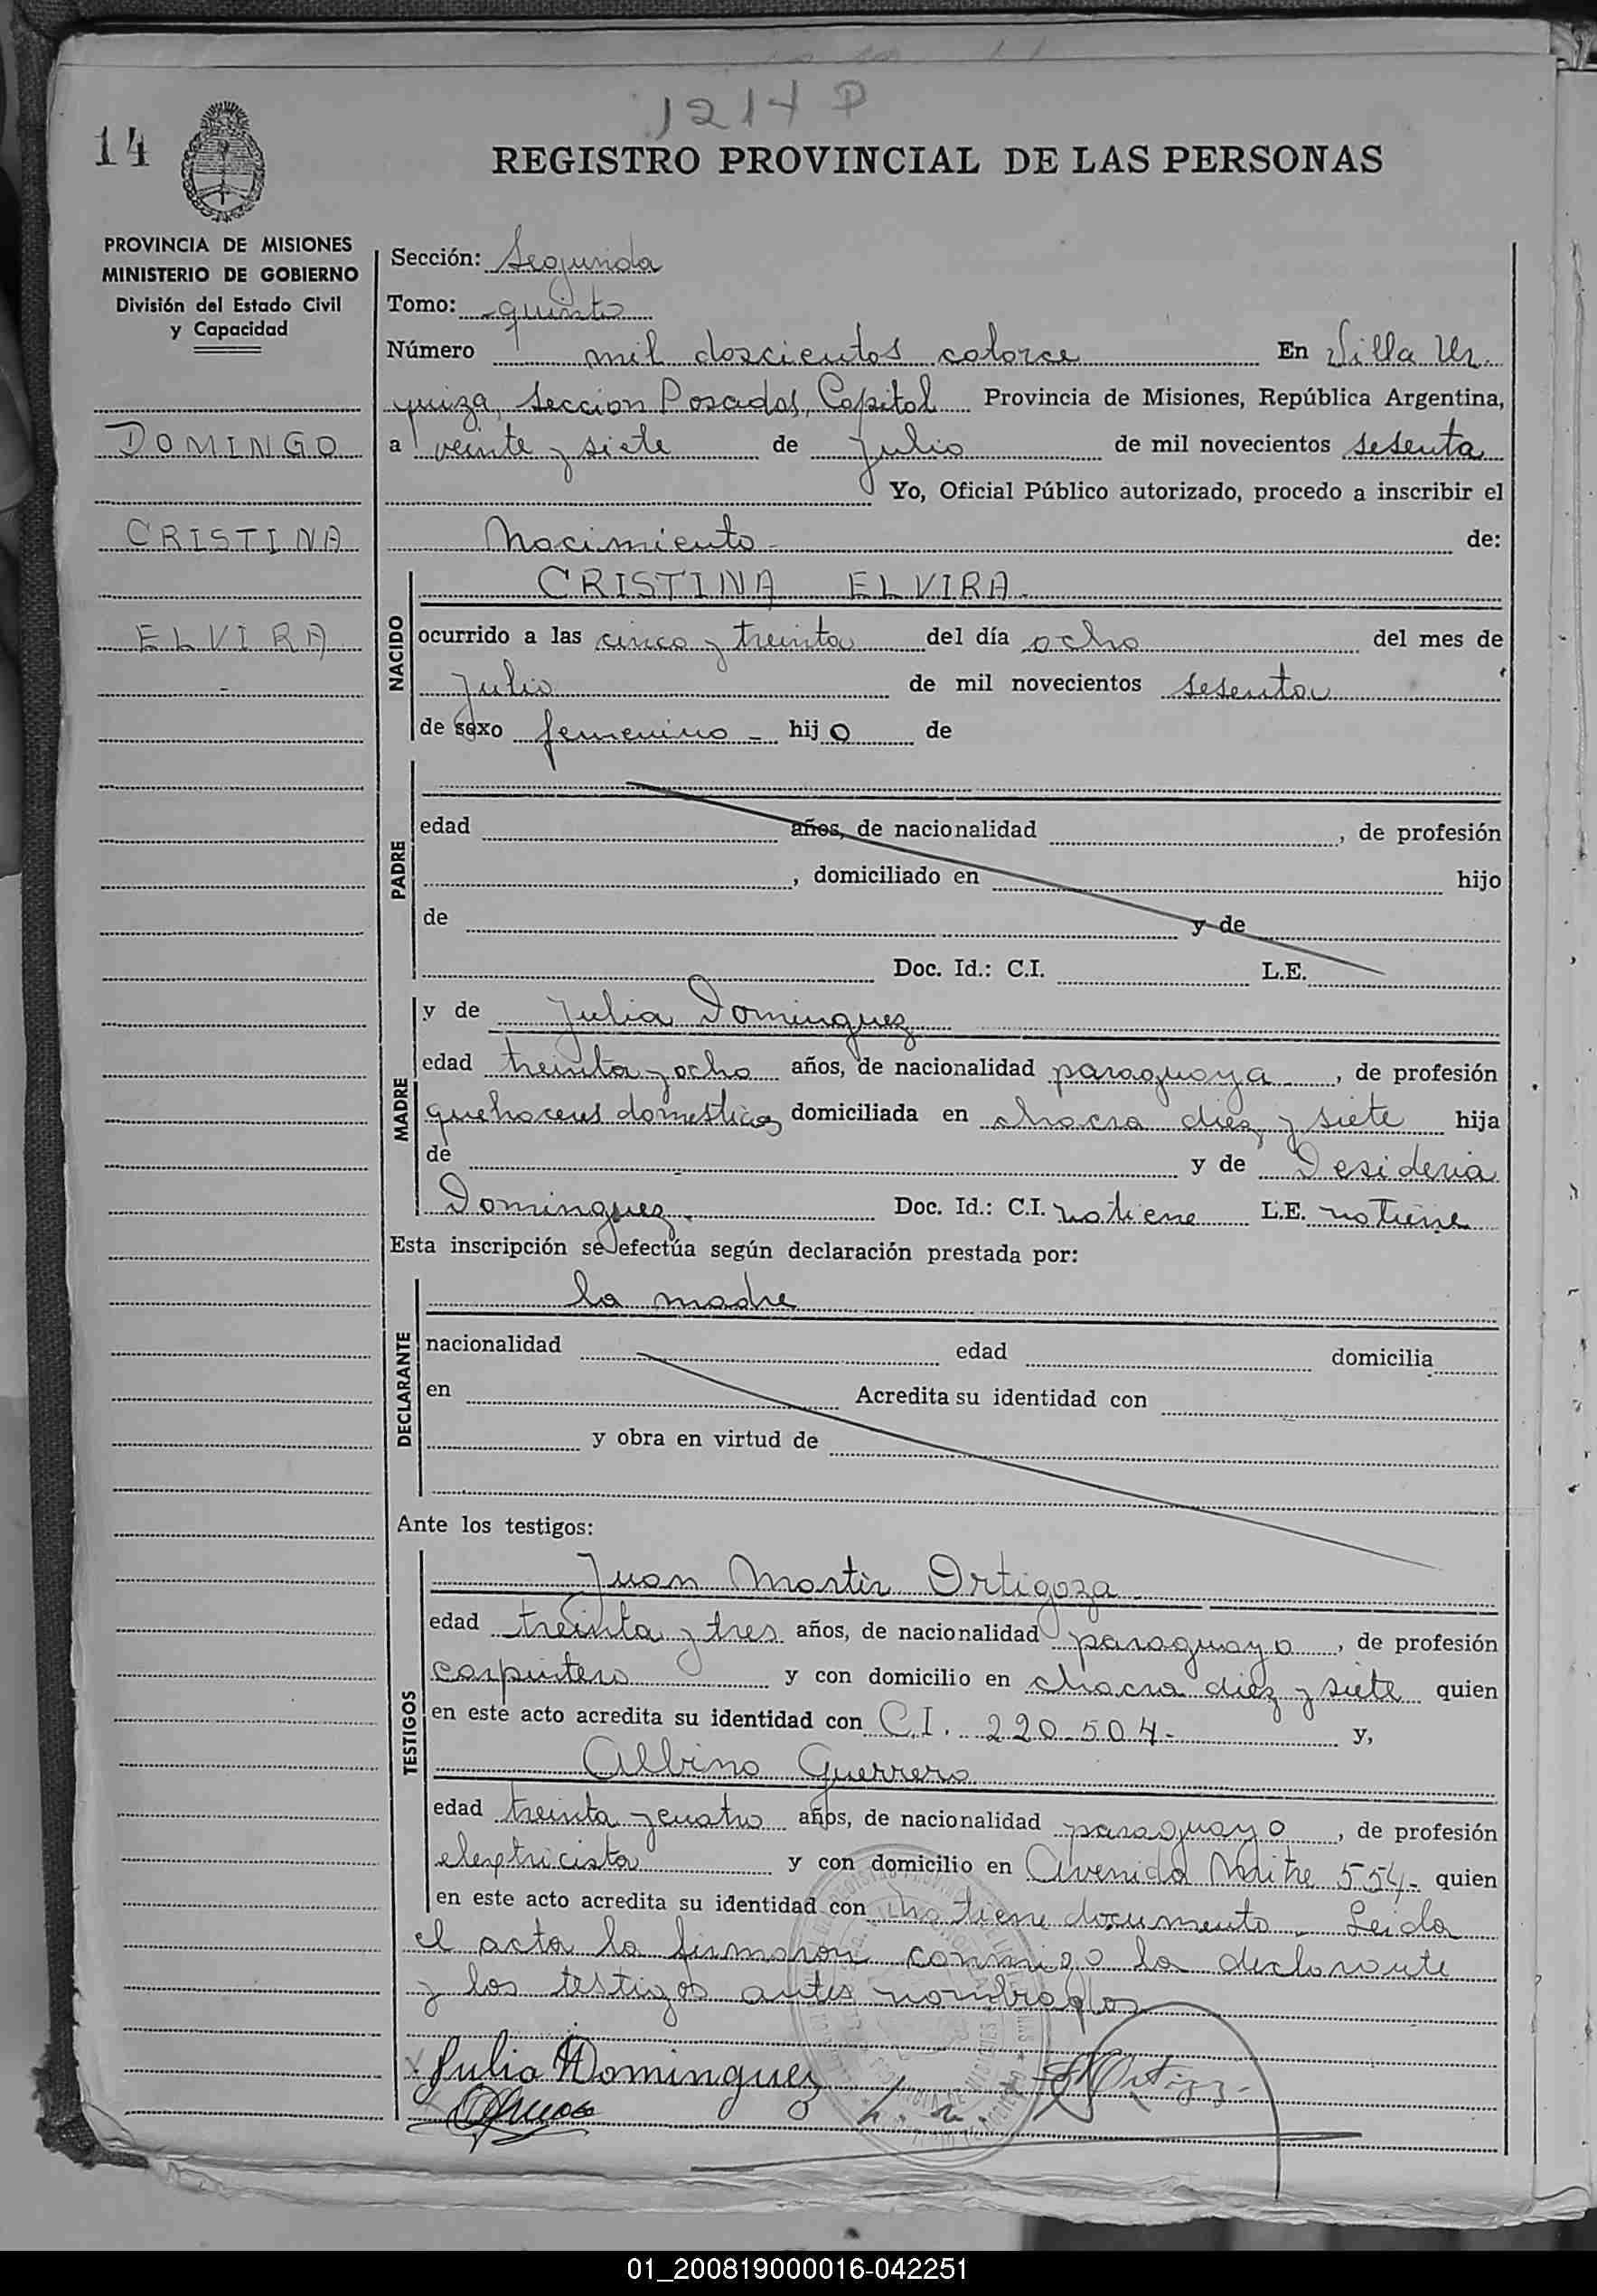 1214 P
14
REGISTRO PROVINCIAL DE LAS PERSONAS
PROVINCIA DE MISIONES
MINISTERIO DE GOBIERNO
División del Estado Civil
y Capacidad
DOMINGO
CRISTINA
ELVIRA
Sección: Segunda
Tomo: quinto
Número mil doscientos catorce En Villa Ur
quiza, Seccion Posadas, Capital Provincia de Misiones, República Argentina,
a veinte y siete de Julio de mil novecientos sesenta
Yo, Oficial Público autorizado, procedo a inscribir el
Nacimiento - de:
NACIDO
CRISTINA ELVIRA.
ocurrido a las cinco y treinta del día ocho del mes de
Julio de mil novecientos sesenta
de sexo femenino - hijo de
PADRE
edad años, de nacionalidad , de profesión
, domiciliado en hijo
de y de
Doc. Id.: C.I. L.E.
MADRE
y de Julia Dominguez
edad treinta y ocho años, de nacionalidad paraguaya , de profesión
quehaceres domesticos domiciliada en chacra diez y siete hija
de y de Desideria
Dominguez. Doc. Id.: C.I. no tiene L.E. no tiene
Esta inscripción se efectúa según declaración prestada por:
DECLARANTE
la madre
nacionalidad edad domicilia
en Acredita su identidad con
y obra en virtud de
Ante los testigos:
TESTIGOS
Juan Martin Ortigoza
edad treinta y tres años, de nacionalidad paraguayo , de profesión
carpintero y con domicilio en chacra diez y siete quien
en este acto acredita su identidad con C.I. 220.504- y,
Albino Guerrero
edad treinta y cuatro años, de nacionalidad paraguayo , de profesión
elextricista y con domicilio en Avenida Mitre 554- quien
en este acto acredita su identidad con no tiene documento. Leida
el acta la firmaron conmigo la declarante
y los testigos antes nombrados
Julia Dominguez
01_200819000016-042251